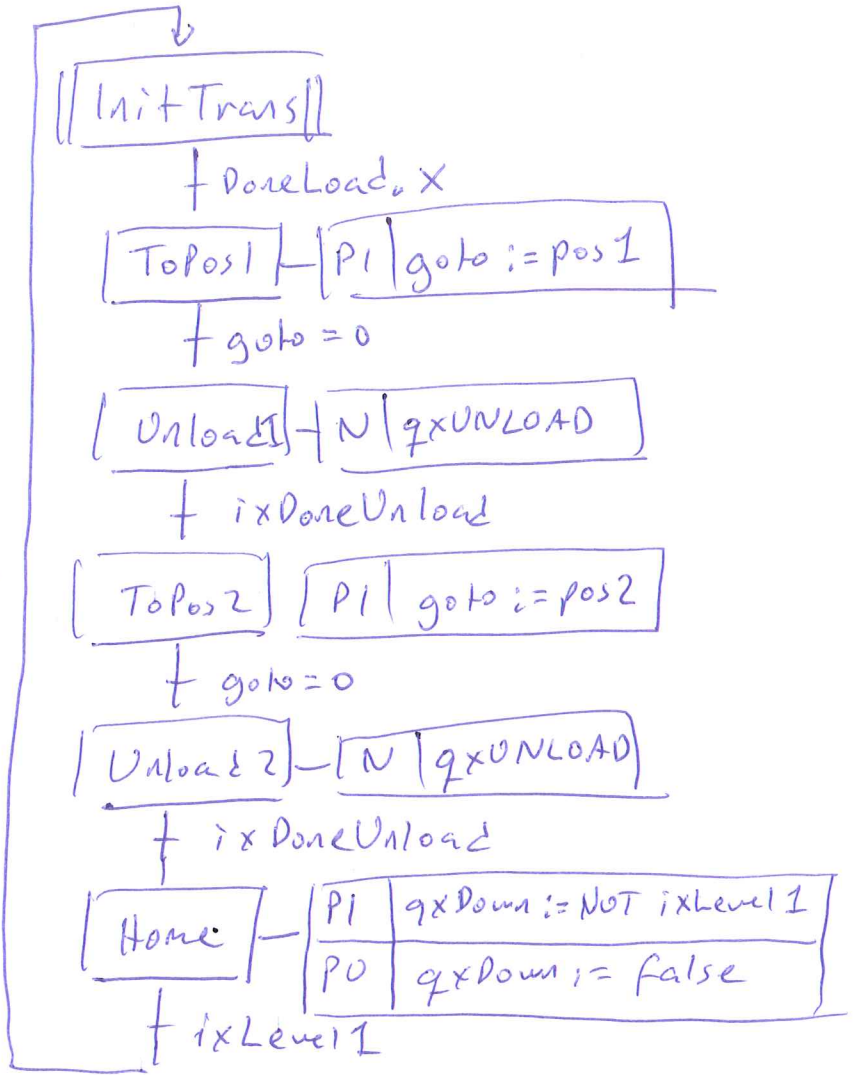 InitTrans
DoneLoad.X
ToPos1 P1 goto := pos1
goto = 0
Unload1 N qxUNLOAD
ixDoneUnload
ToPos2 P1 goto := pos2
goto = 0
Unload2 N qxUNLOAD
ixDoneUnload
Home P1 qxDown := NOT ixLevel1
P0 qxDown := false
ixLevel1